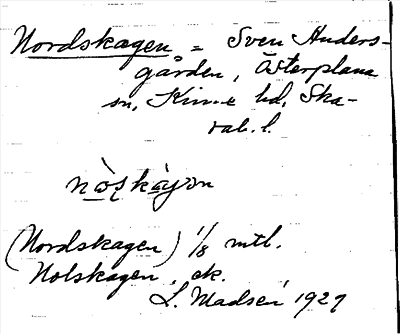 Nordskagen = Sven Anders-
gården, Österplana
sn, Kinne hd, Ska-
rab. l.
nòskàgɔn
(Nordskagen) 1/8 mtl.
Nolskagen, ek.
L. Madsén 1927